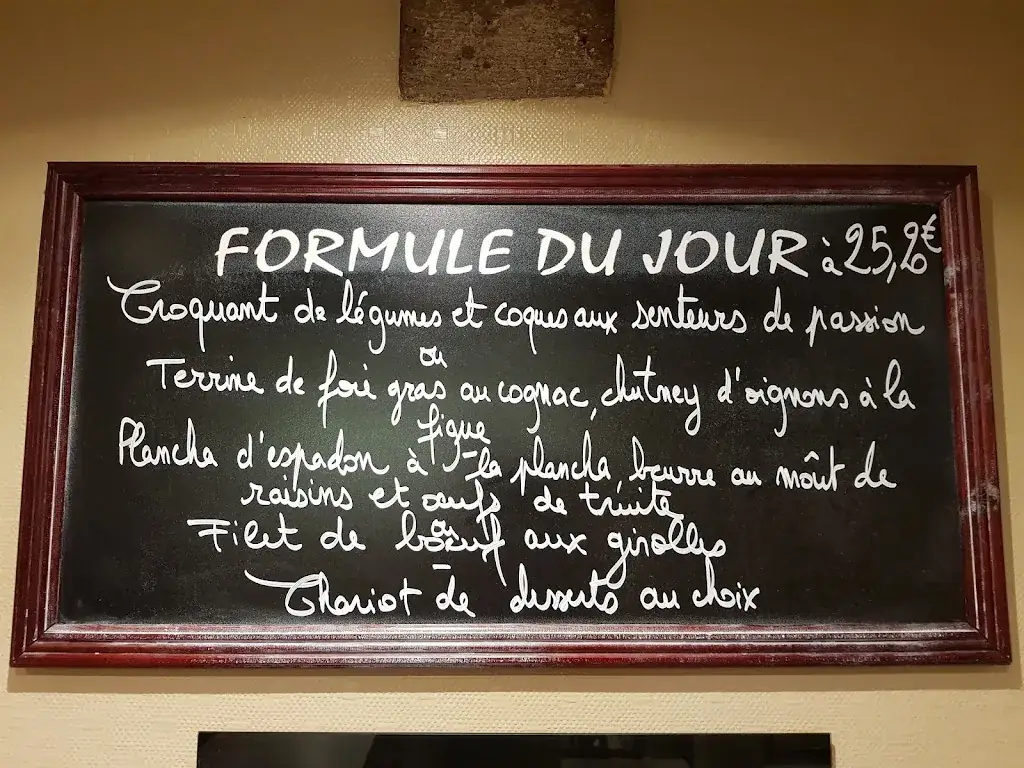 FORMULE DU JOUR à 25,20€
Croquant de légumes et coques aux senteurs de passion
ou
Terrine de foie gras au cognac, chutney d'oignons à la
figue
Plancha d'espadon à la plancha, beurre au moût de
raisins et œufs de truite
ou
Filet de bœuf aux girolles
-
Chariot de desserts au choix